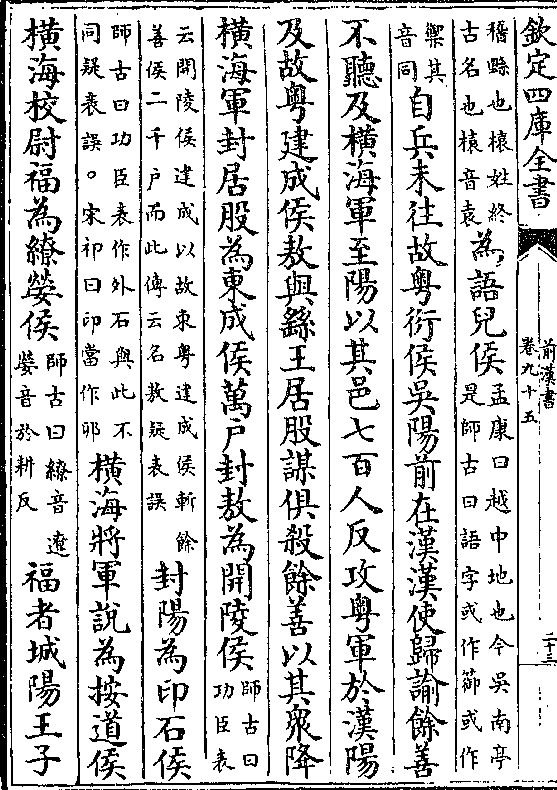 欽定四庫全書
前漢書
卷九十五
二十三
稽縣也榬姓終
古名也榬音袁
為語兒侯
孟康曰越中地也今吳南亭
是師古曰語字或作篽或作
籞其
音同
自兵未往故粤衍侯吳陽前在漢漢使歸諭餘善
不聽及橫海軍至陽以其邑七百人反攻粤軍於漢陽
及故粤建成侯敖與繇王居股謀俱殺餘善以其衆降
橫海軍封居股為東成侯萬户封敖為開陵侯
師古曰
功臣表
云開陵侯建成以故東粤建成侯斬餘
善侯二千户而此傳云名敖疑表誤
封陽為印石侯
師古曰功臣表作外石與此不
同疑表誤。宋祁曰印當作卯
橫海將軍說為按道侯
橫海校尉福為繚嫈侯
師古曰繚音遼
嫈音於耕反
福者城陽王子